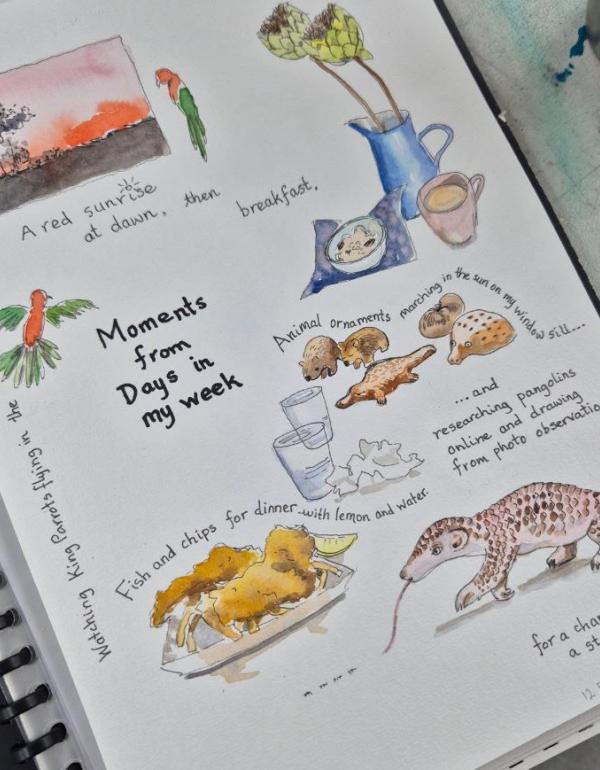 A red sunrise
at dawn, then
breakfast.
Moments
from
Days in
my week
Animal ornaments marching in the sun on my window sill...
...and
researching pangolins
online and drawing
from photo
Watching King Parrots flying in the
Fish and chips for dinner with lemon and water.
for a
a
12